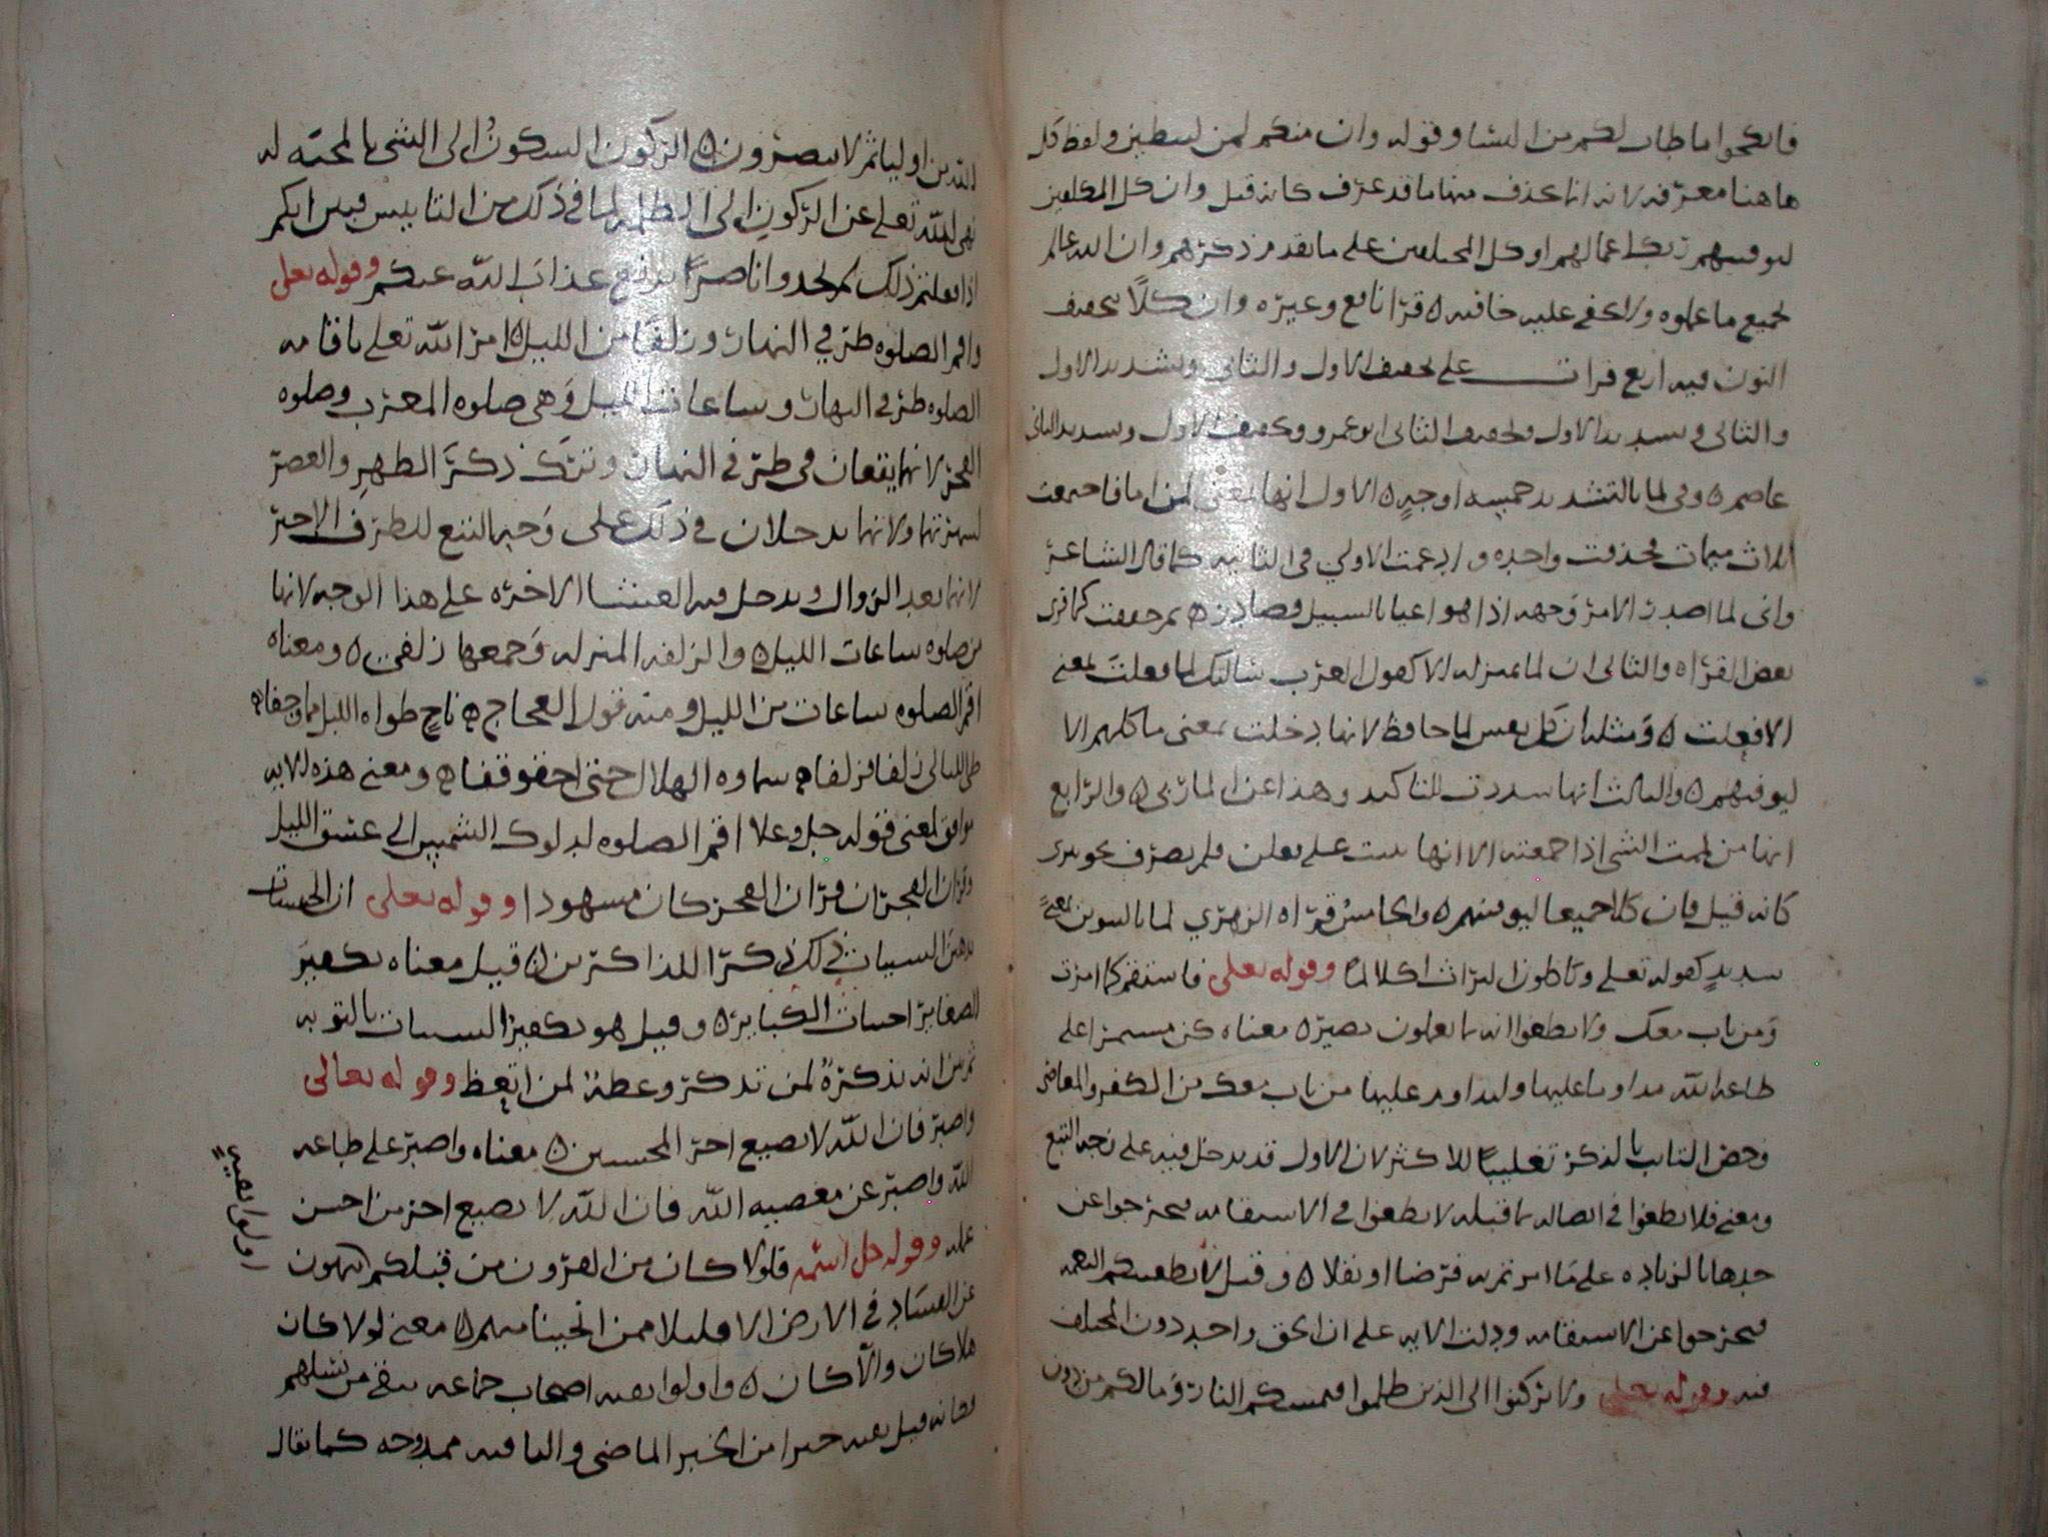 فانكحوا ما طاب لكم من النسا وقوله وان منكم لمن ليبطين ولفظ كل
هاهنا معرفه لانه انما حذف منها ما قد عرف كانه قيل وان كل المكلفين
ليوفينهم ربك اعمالهم او كل المختلفين على ما تقدم من ذكرهم وان الله عالم
بجميع ما عملوه ولا تخفى عليه خافيه ه قرا نافع وغيره وان كلاً بتخفيف
النون فيه اربع قرات على تخفيف الاول والثاني وتشديد الاول
والثاني وتشديد الاول وتخفيف الثاني ابو عمرو وتخفيف الاول وتشديد الثاني
عاصم ه وفي لما بالتشديد خمسه اوجه ه الاول انها بمعنى لمن ما فاجتمعت
ثلاث ميمات فحذفت واحده وادغمت الاولي في الثانيه كما قال الشاعر
واني لما اصدر الامر وجهه اذا هو اعيا بالسبيل مصادره ثم خففت كما قرى
بعض القراه والثاني ان لما بمنزله الا كقول العرب سالتك لما فعلت بمعنى
الا فعلت ه ومثله ان كل نفس لما عليها حافظ لانها دخلت بمعنى ما كلهم الا
ليوفينهم ه والثالث انها شددت للتاكيد وهذا عن المازني ه والرابع
انها من لممت الشي اذا جمعته الا انها بنيت على فعلى فلم يصرف نحو تترى
كانه قيل وان كلا جميعا ليوفينهم ه والخامس قراه الزهري لما بالتنوين بمعنى
شديد كقوله تعلى وتاكلون التراث اكلا لما وقوله تعلى فاستقم كما امرت
ومن تاب معك ولا تطغوا انه بما تعملون بصير ه معناه كن مستمرا على
طاعه الله مداوما عليها وليداوم عليها من تاب معك من الكفر والمعاصي
وخص التايب بالذكر تغليبا للاكثر لان الاول قد يدخل فيه على وجه التبع
ومعنى فلا تطغوا في اتصاله بما قبله لا تطغوا في الاستقامه فتخرجوا عن
حدها بالزياده على ما امرتم به فرضا او نفلا ه وقيل لا تطغينكم النعمه
فتخرجوا عن الاستقامه ودلت الايه على ان الحق واحد دون المختلف
فيه وقوله تعلى ولا تركنوا الى الذين ظلموا فتمسكم النار وما لكم من دون
الله من اوليا ثم لا تنصرون ه الركون السكون الى الشي بالمحبه له
نهى الله تعلى عن الركون الى الظلمه لما في ذلك من التانيس فبين انكم
اذا فعلتم ذلك لم تجدوا ناصرا يدفع عذاب الله عنكم وقوله تعلى
واقم الصلوه طرفي النهار وزلفا من الليل ه امر الله تعلى باقامه
الصلوه طرفي النهار وساعات الليل وهي صلوه المغرب وصلوه
الفجر لانهما يقعان في طرفي النهار وترك ذكر الظهر والعصر
لشهرتهما ولانهما يدخلان في ذلك على وجه التبع للطرف الاخير
لانهما بعد الزوال ويدخل فيه العشا الاخره على هذا الوجه لانها
من صلوه ساعات الليل ه والزلفه المنزله وجمعها زلف ه ومعناه
اقم الصلوه ساعات من الليل ومنه قول العجاج ه ناج طواه الليل مما وجفا ه
طي الليالي زلفا فزلفا ه سماوه الهلال حتى احقوقفا ه ومعنى هذه الايه
يوافق لمعنى قوله جل وعلا اقم الصلوه لدلوك الشمس الى غسق الليل
وقران الفجر ان قران الفجر كان مشهودا وقوله تعلى ان الحسنات
يذهبن السيات ذلك ذكرا للذاكرين ه قيل معناه تكفير
الصغاير اجتناب الكباير ه وقيل هو تكفير السيات بالتوبه
ثم بين انه تذكرة لمن تذكر وعظة لمن اتعظ وقوله تعالى
واصبر فان الله لا يضيع اجر المحسنين ه معناه واصبر على طاعه
الله واصبر عن معصيه الله فان الله لا يضيع اجر من احسن
عمله وقوله جل اسمه فلولا كان من القرون من قبلكم ينهون
عن الفساد في الارض الا قليلا ممن انجينا منهم ه معنى لولا كان
هلا كان والا كان ه واولوا بقيه اصحاب جماعه تبقى من نسلهم
وكانه قيل بقيه خيرا من الخير الماضي والباقيه ممدوحه كما يقال
اولوا بقيه